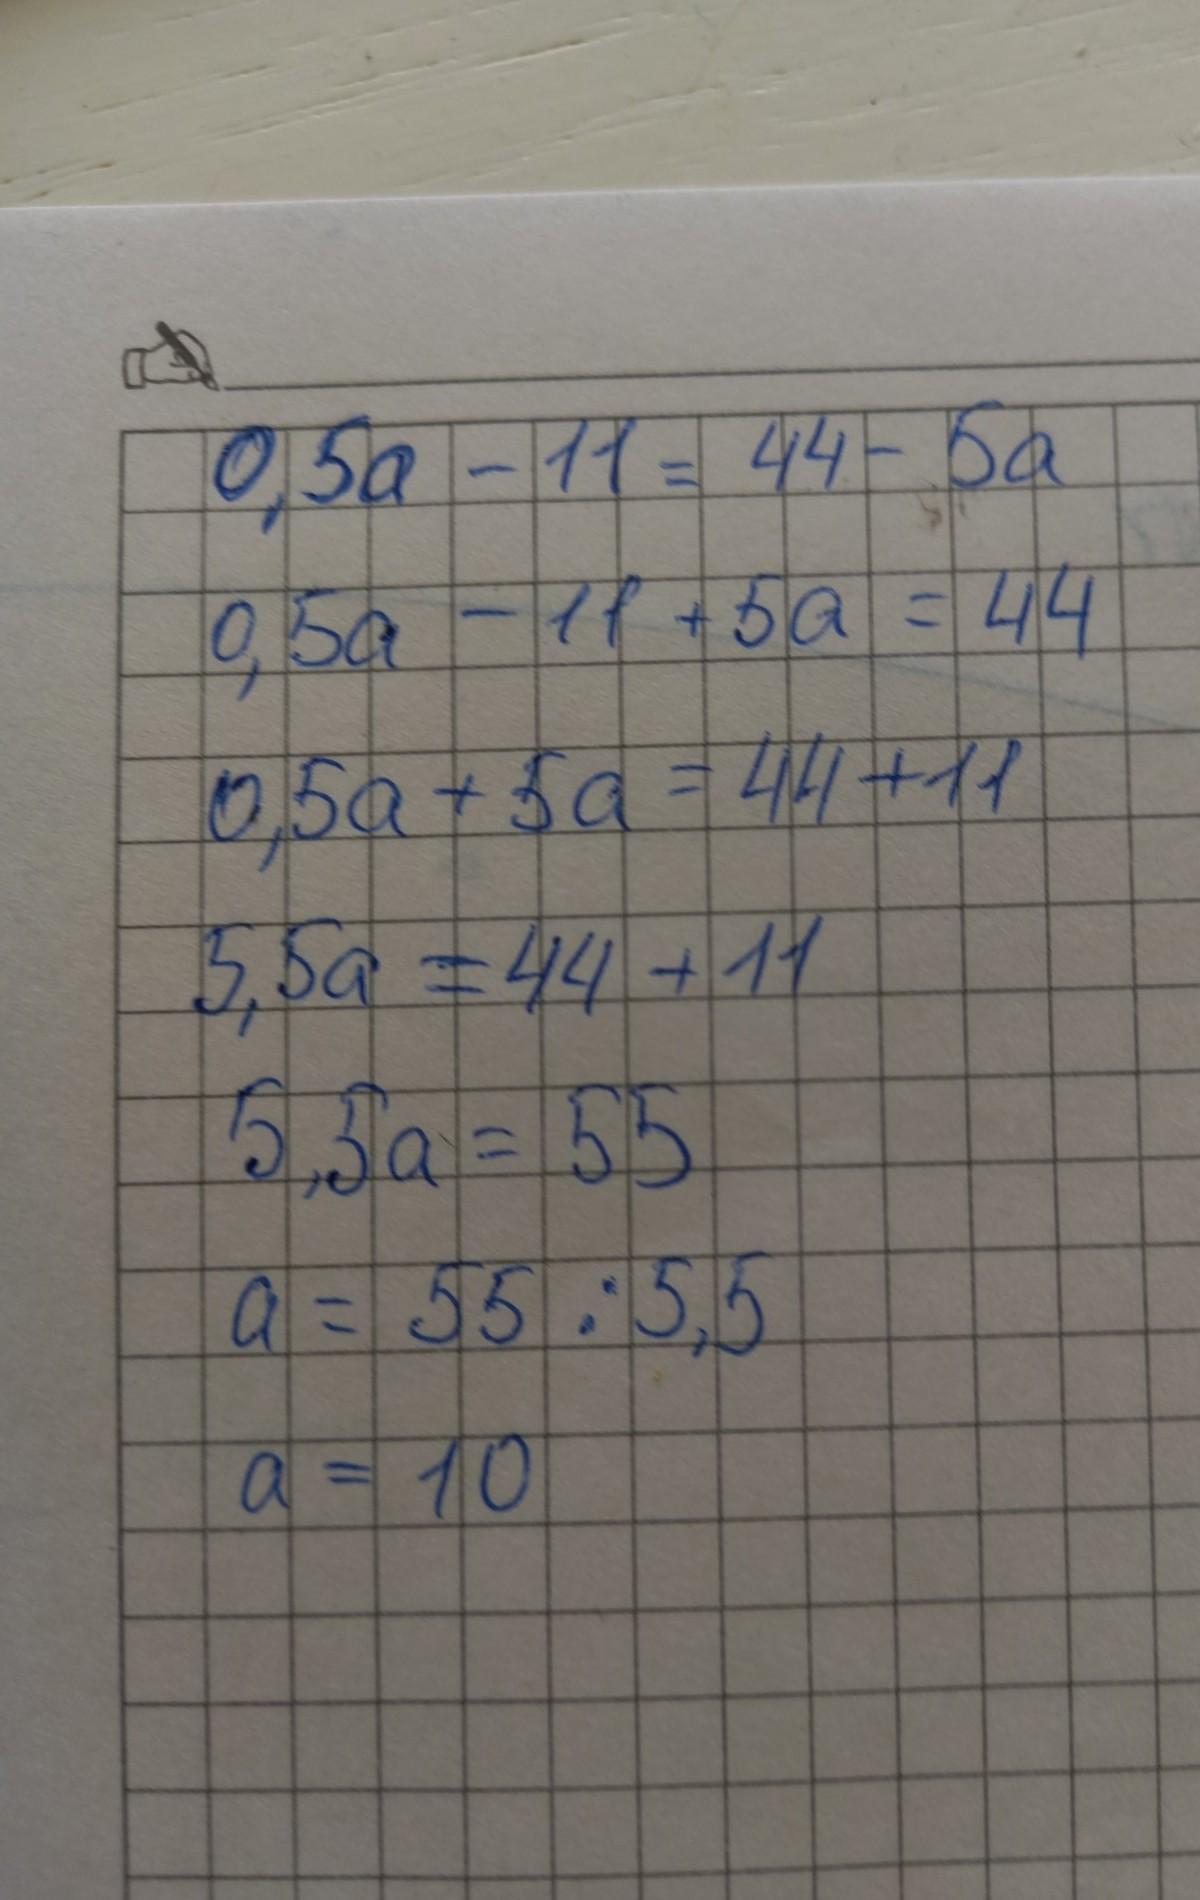 0,5a - 11 = 44 - 5a
0,5a - 11 + 5a = 44
0,5a + 5a = 44 + 11
5,5a = 44 + 11
5,5a = 55
a = 55 : 5,5
a = 10